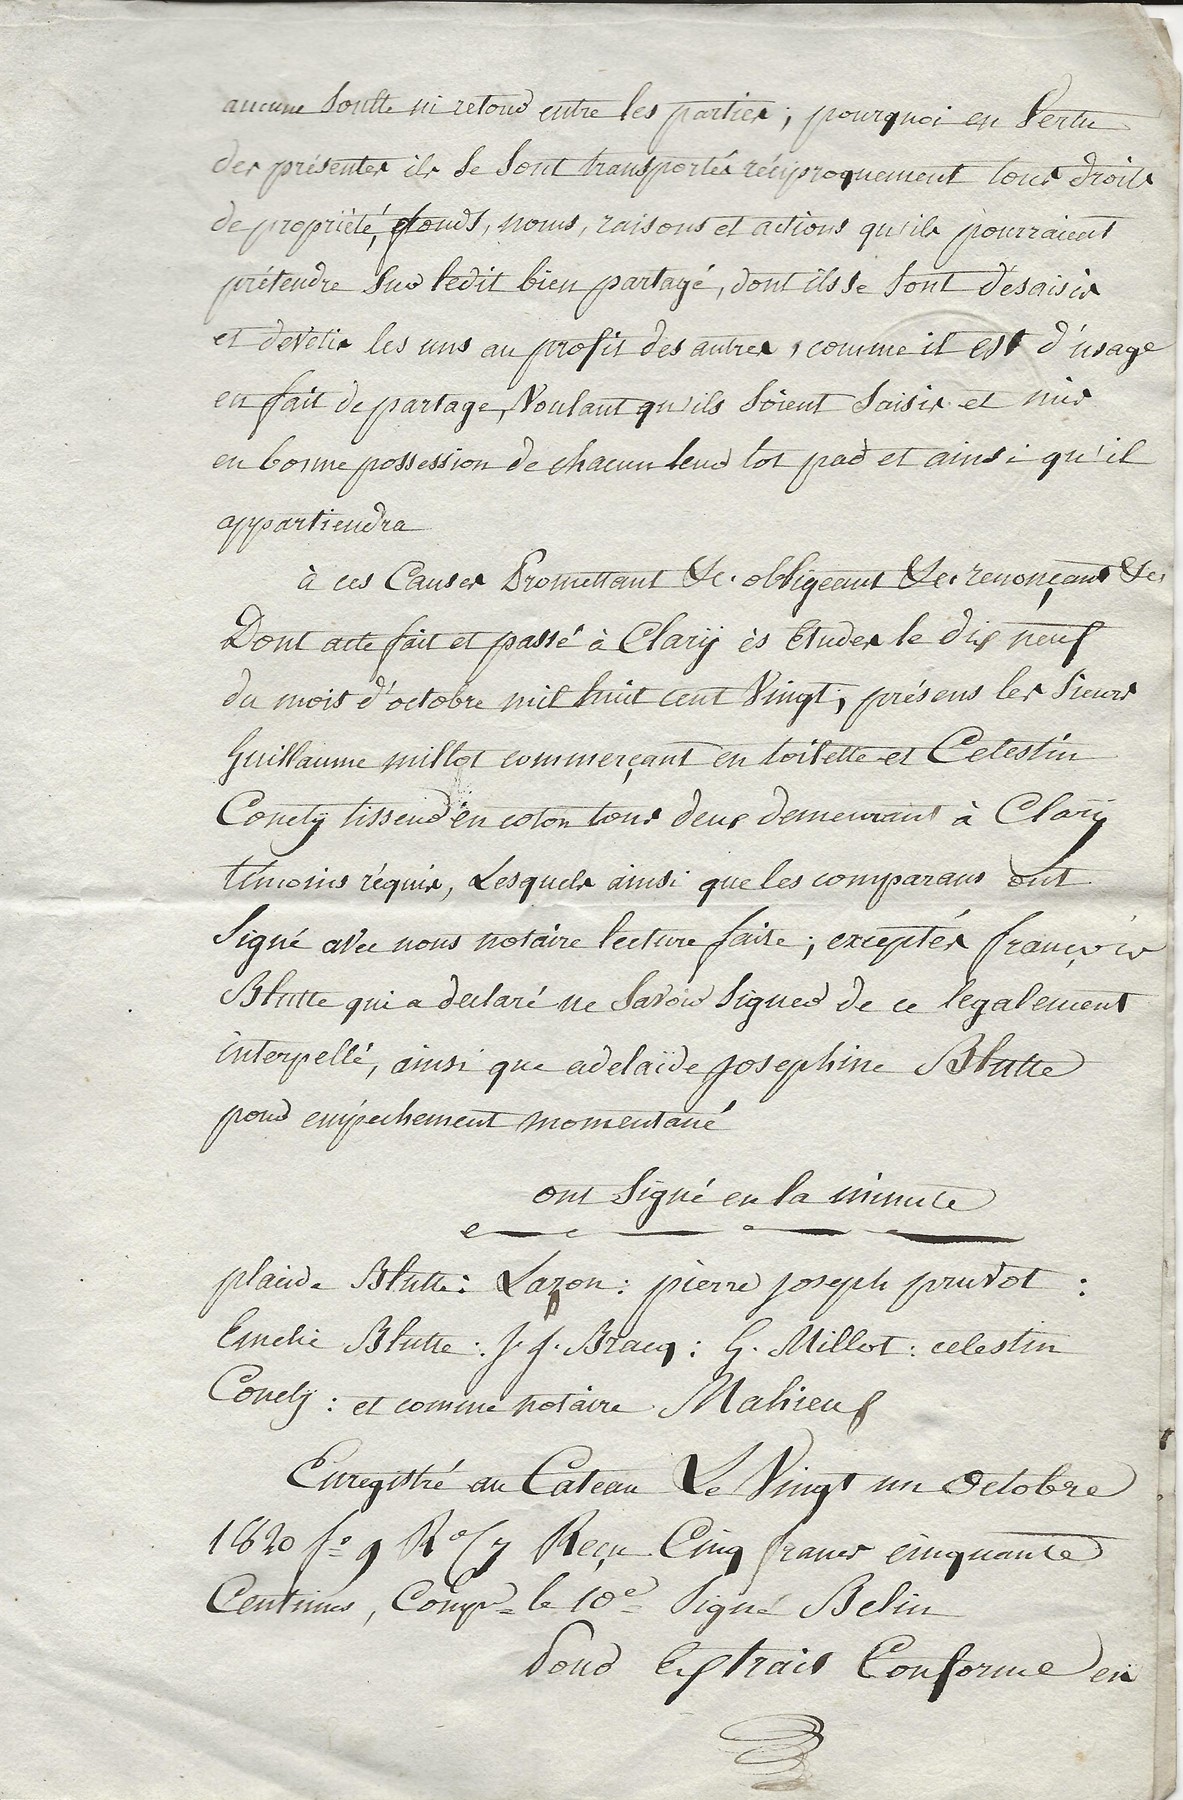 aucune soulte ni retour entre les parties ; pourquoi en Vertu
des présentes ils se sont transportés réciproquement tous droits
de propriété, fonds, noms, raisons et actions qu'ils pourraient
prétendre sur ledit bien partagé, dont ils se sont désaisis
et devetis les uns au profit des autres, comme il est d'usage
en fait de partage, Voulant qu'ils soient saisis et mis
en bonne possession de chacun leur lot par et ainsi qu'il
appartiendra
à ces Causes Promettant &c. obligeant &c. renonçant &c
Dont acte fait et passé à Clarÿ ès études le dix neuf
du mois d'octobre mil huit cent Vingt, présens les sieurs
Guillaume millot commerçant en toilette et Celestin
Conely tisseur en coton tous deux demeurant à Clarÿ
témoins réquis, Lesquels ainsi que les comparans ont
signé avec nous notaire lecture faite ; exceptés françois
Blutte qui a declaré ne savoir signer de ce légalement
interpellé, ainsi que adelaïde josephine Blutte
pour empechement momentané
ont signé en la minute
placide Blutte : Lazon : pierre joseph pruvot :
Emelie Blutte : J. J. Bracq : G. Millot : celestin
Conelÿ : et comme notaire Mahieux
Enregistré au Cateau Le Vingt un Octobre
1820 fo 9 Ro C 7 Reçu Cinq francs cinquante
Centimes, Compr le 10e Signé Belin
Pour Extrait Conforme en